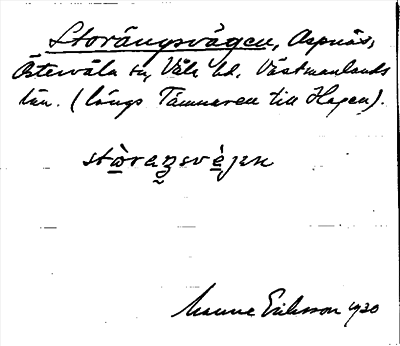 Storängsvägen, Aspnäs,
Östervåla sn, Våla hd, Västmanlands
län. (längs Tämnaren till Hagen).
stòraŋsvèjen
Manne Eriksson 1930